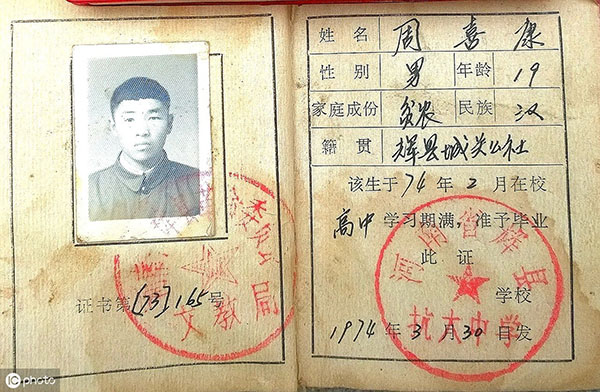 证书第[73]165号
文教局
姓名 周喜康
性别 男 年龄 19
家庭成份 贫农 民族 汉
籍贯 辉县城关公社
该生于74年2月在校
高中学习期满,准予毕业
此证
河南省辉县
学校
抗大中学
1974年3月30日发
photo